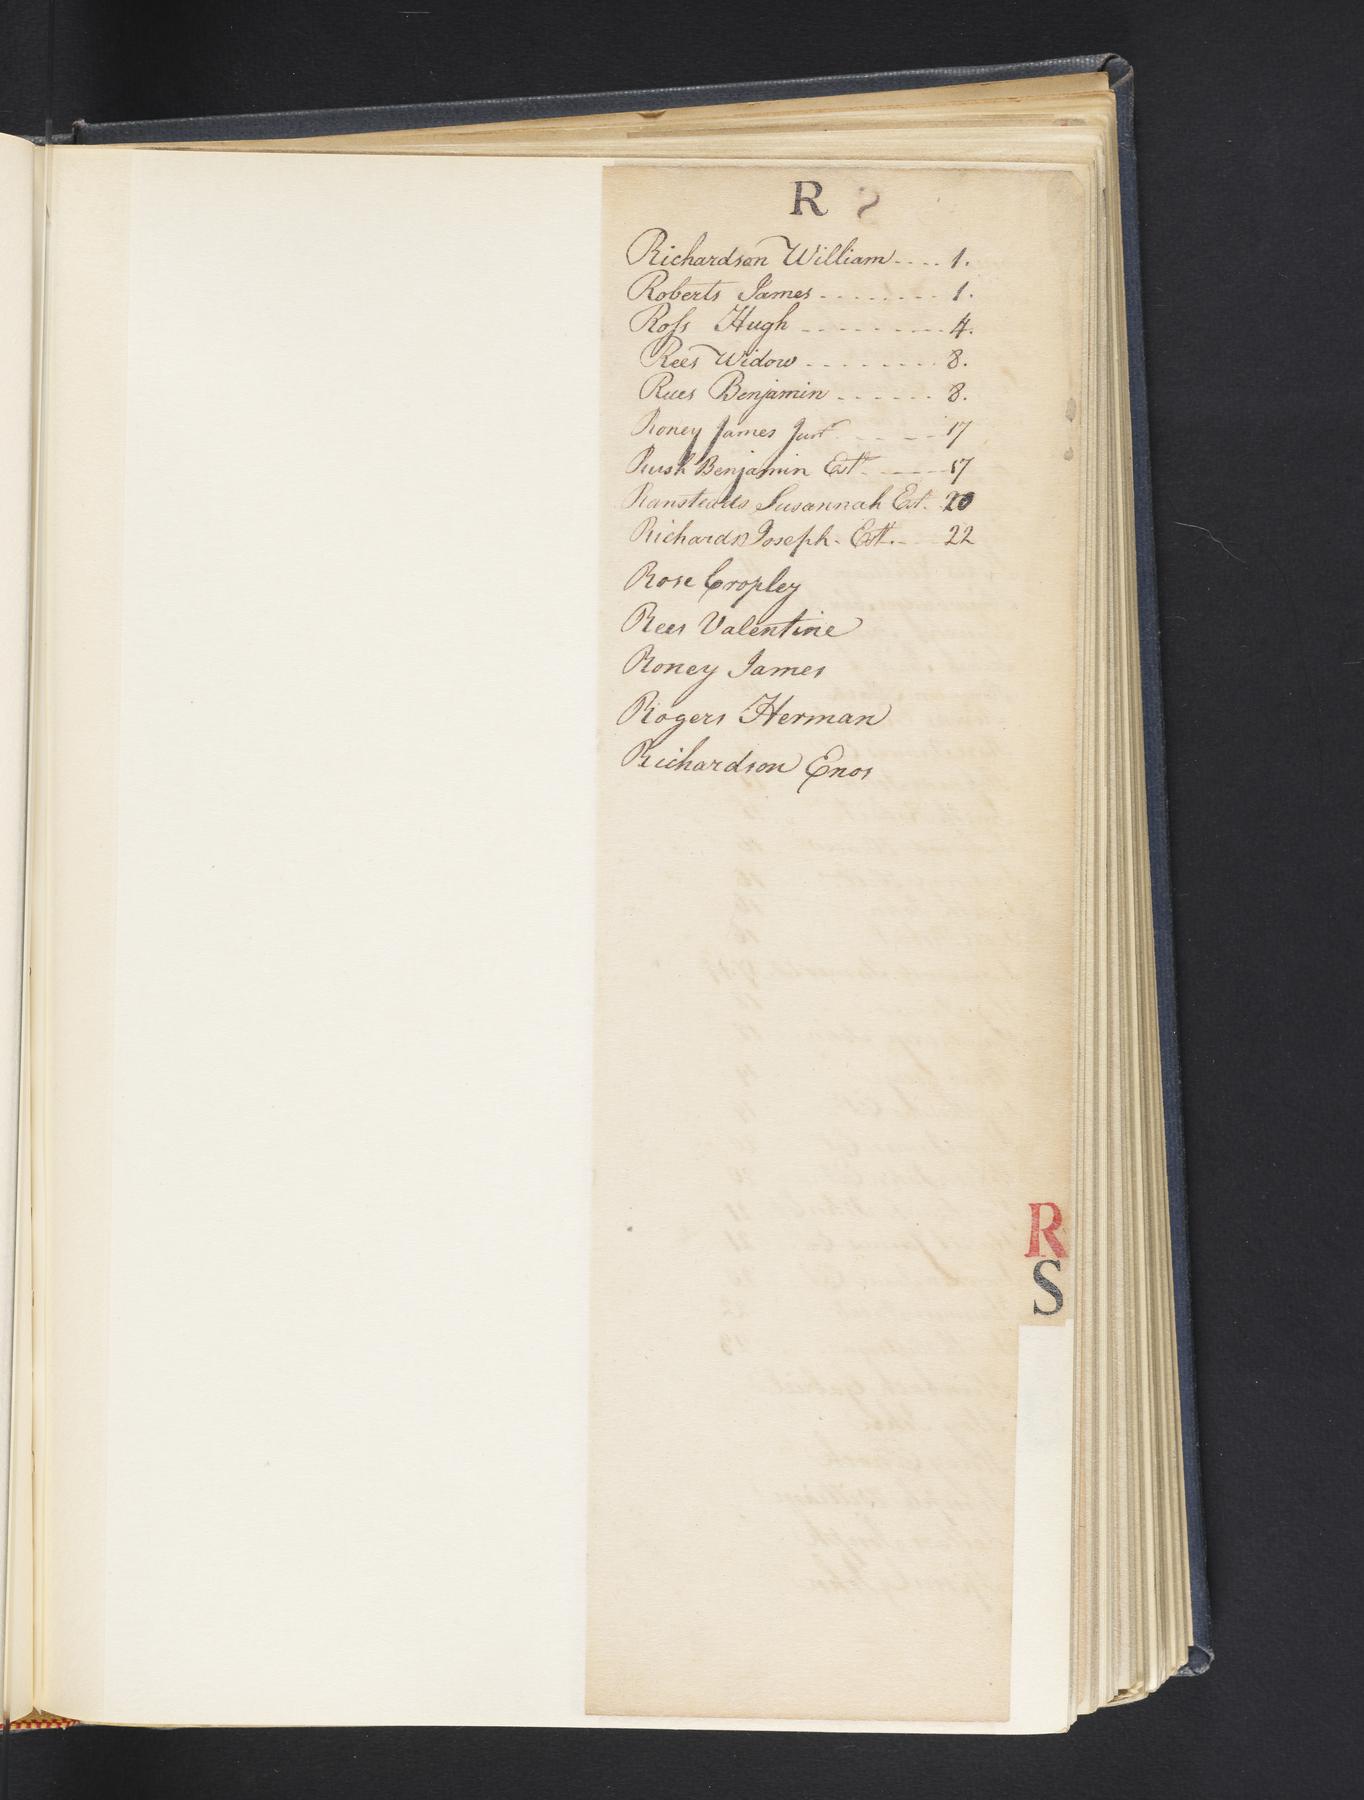 R
Richardson William .... 1.
Roberts James ........ 1.
Ross Hugh ......... 4.
Rees Widow ........ 8.
Rees Benjamin ...... 8.
Roney James Junr. ... 17
Rush Benjamin Est. ... 17
Ransteads Susannah Est. 20
Richards Joseph. Est. .. 22
Rose Cropley
Rees Valentine
Roney James
Rogers Herman
Richardson Enos
R
S